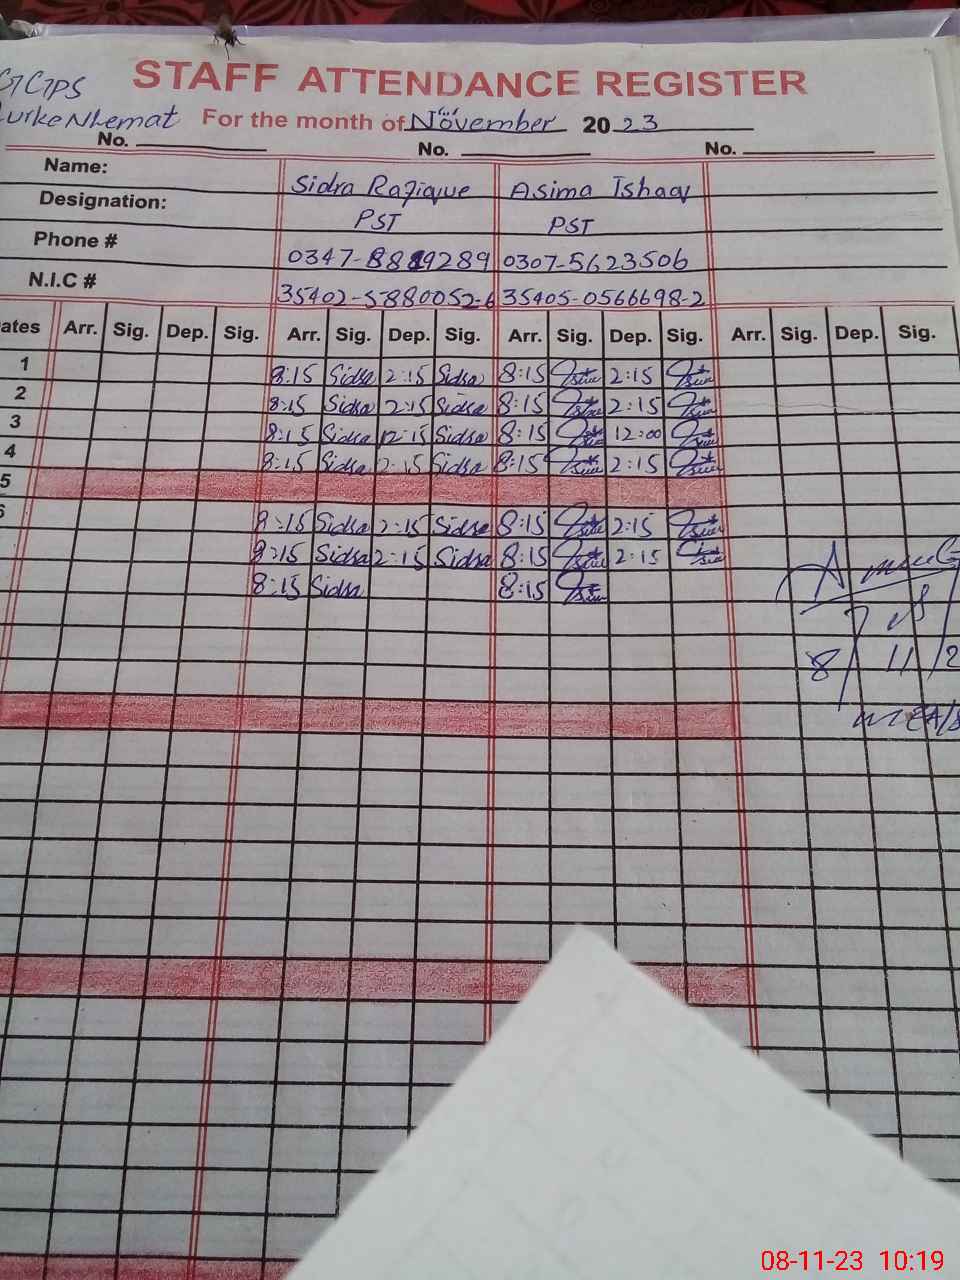 GGPS
STAFF ATTENDANCE REGISTER
For the month of November 2023
No. No. No.
Name: Sidra Rafique Asima Ishaq
Designation: PST PST
Phone # 0347-8819289 0307-5623506
N.I.C # 35402-5880052-6 35405-0566698-2
ates Arr. Sig. Dep. Sig. Arr. Sig. Dep. Sig. Arr. Sig. Dep. Sig. Arr. Sig. Dep. Sig.
1 8:15 Sidra 2:15 Sidra 8:15 2:15
2 8:15 Sidra 2:15 Sidra 8:15 2:15
3 8:15 Sidra 12:15 Sidra 8:15 12:00
4 8:15 Sidra 2:15 Sidra 8:15 2:15
5
6 8:15 Sidra 2:15 Sidra 8:15 2:15
8:15 Sidra 2:15 Sidra 8:15 2:15
8:15 Sidra 8:15
8/11/2
08-11-23 10:19